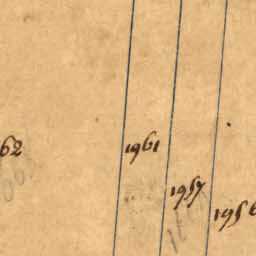 62
1961
1957
1956